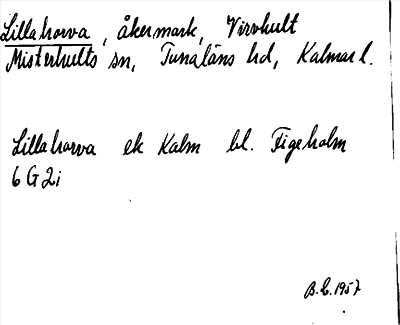 Lillahorva, åkermark, Virvhult
Misterhults sn, Tunaläns hd, Kalmar l.
Lillahorva ek Kalm bl. Figeholm
6 G 2 i
B.E. 1957